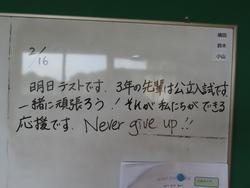 2/16
明日テストです。3年の先輩は公立入試です
一緒に頑張ろう!それが私たちができる
応援です。Never give up!!